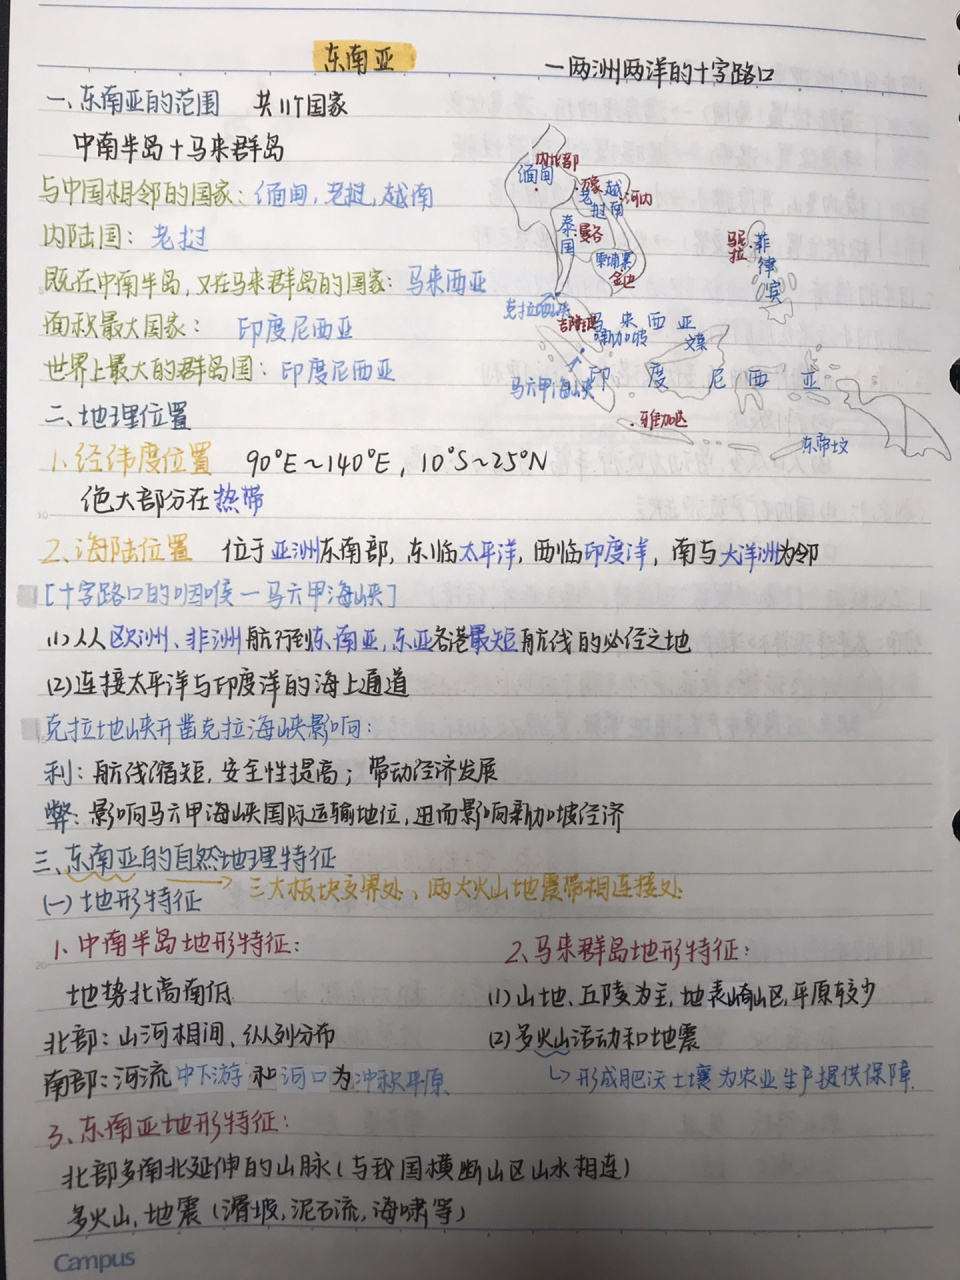 东南亚
一两洲两洋的十字路口
一、东南亚的范围 共11个国家
中南半岛+马来群岛
与中国相邻的国家：缅甸，老挝，越南
内陆国：老挝
既在中南半岛，又在马来群岛的国家：马来西亚
面积最大国家： 印度尼西亚
世界上最大的群岛国：印度尼西亚
内比都
缅甸
万象
老挝
越南
河内
泰国
曼谷
柬埔寨
金边
马尼拉
菲律宾
克拉地峡
吉隆坡
马来西亚
新加坡
文莱
马六甲海峡
印度尼西亚
雅加达
东帝汶
二、地理位置
1、经纬度位置 90°E~140°E，10°S~25°N
绝大部分在热带
2、海陆位置 位于亚洲东南部，东临太平洋，西临印度洋，南与大洋洲为邻
[十字路口的咽喉一马六甲海峡]
(1)从欧洲、非洲航行到东南亚，东亚各港最短航线的必经之地
(2)连接太平洋与印度洋的海上通道
克拉地峡开凿克拉海峡影响：
利：航线缩短，安全性提高；带动经济发展
弊：影响马六甲海峡国际运输地位，进而影响新加坡经济
三、东南亚的自然地理特征
→三大板块交界处，两大火山地震带相连接处
(一)地形特征
1、中南半岛地形特征：
地势北高南低
北部：山河相间、纵列分布
南部：河流中下游和河口为冲积平原
2、马来群岛地形特征：
(1)山地、丘陵为主，地表崎岖，平原较少
(2)多火山活动和地震
↳形成肥沃土壤为农业生产提供保障
3、东南亚地形特征：
北部多南北延伸的山脉(与我国横断山区山水相连)
多火山，地震(滑坡，泥石流，海啸等)
Campus